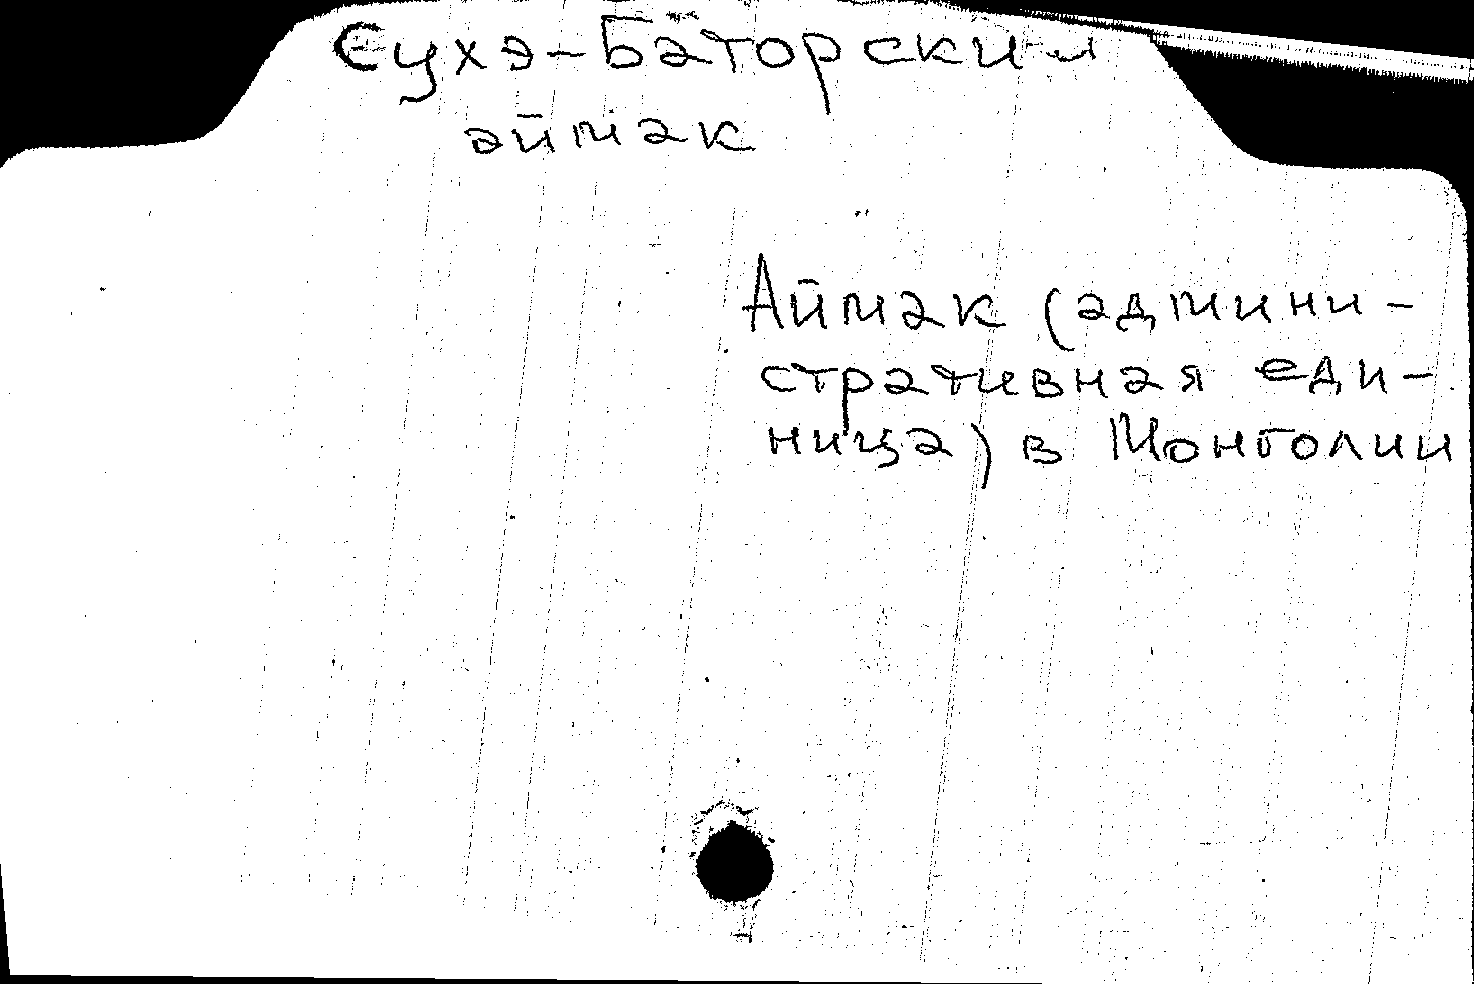 Сухэ-Баторский
аймак
Аймак (админи-
стративная еди-
ница) в Монголии